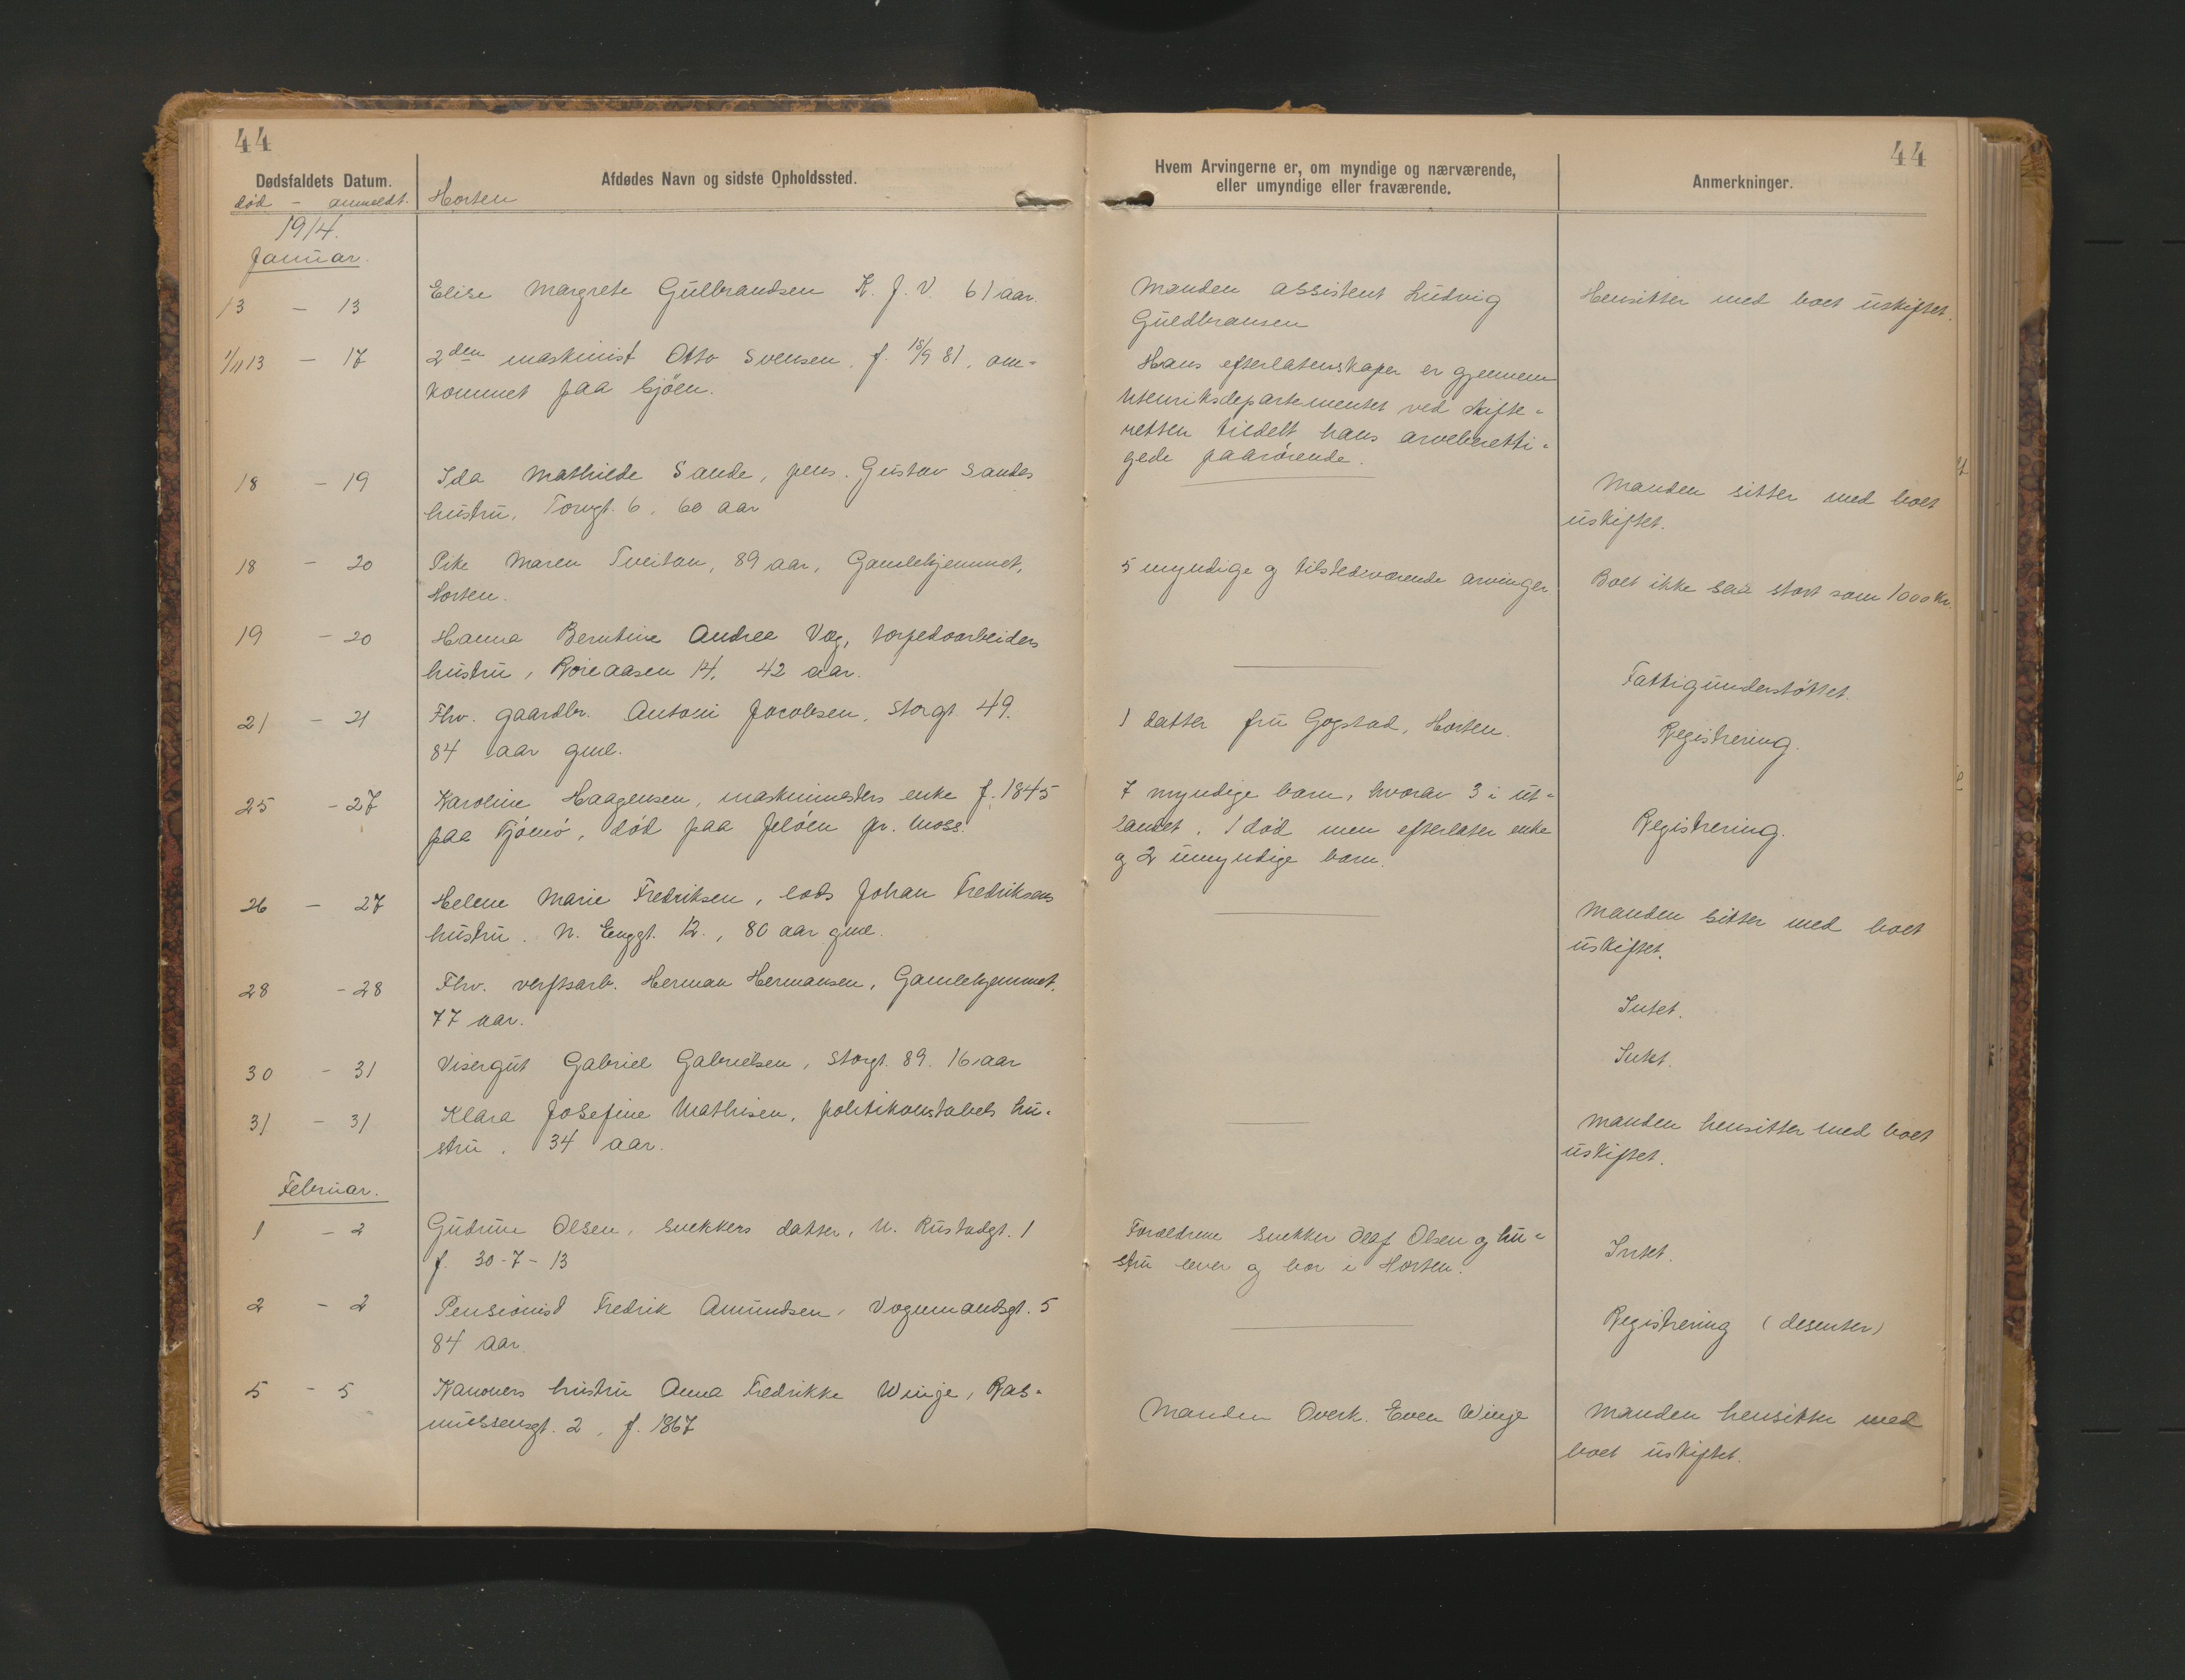 44
44
Dødsfaldets Datum.
død - anmeldt.
Afdødes Navn og sidste Opholdssted.
Horten
Hvem Arvingerne er, om myndige og nærværende,
eller umyndige eller fraværende.
Anmerkninger.
1914.
Januar.
13 - 13
Elise Margrete Gulbrandsen K. J. V. 61 aar.
Manden assistent Ludvig
Guldbransen
Hensitter med boet uskiftet.
1/11 13 - 17
2den maskinist Otto Svensen, f. 18/9 81, om-
kommet paa sjöen.
Hans efterlatenskaper er gjennem
Utenriksdepartementet ved skifte-
retten tildelt hans arveberetti-
gede paarørende.
18 - 19
Ida Mathilde Sande, pens. Gustav Sandes
hustru, Torvgt. 6, 60 aar
Manden sitter med boet
uskiftet.
18 - 20
Pike Maren Tveitan, 89 aar, Gamlehjemmet,
Horten.
5 myndige og tilstedeværende arvinger
Boet ikke saa stort som 1000 Kr.
19 - 20
Hanna Berntine Andrea Vog, torpedoarbeiders
hustru, Røreaasen 14, 42 aar.
Fattigunderstøttet.
21 - 21
Fhv. gaardbr. Antoni Jacobsen, Storgt. 49.
84 aar gml.
1 datter fru Gogstad, Horten.
Registrering.
25 - 27
Karoline Haagensen, maskinmesters enke f. 1845
paa Tjömö, død paa Jelöen pr. Moss.
7 myndige barn, hvorav 3 i ut-
landet. 1 død men efterlater enke
og 2 umyndige barn.
Registrering.
26 - 27
Helene Marie Fredriksen, lods Johan Fredriksens
hustru. N. Enggt. 12., 80 aar gml.
Manden sitter med boet
uskiftet.
28 - 28
Fhv. verftsarb. Herman Hermansen, Gamlehjemmet.
77 aar.
Intet.
30 - 31
Visergut Gabriel Gabrielsen, Storgt. 89. 16 aar
Intet.
31 - 31
Klara Josefine Mathisen, politikonstabels hu-
stru. 34 aar.
Manden hensitter med boet
uskiftet.
Februar.
1 - 2
Gudrun Olsen, snekkers datter, N. Rustadgt. 1
f. 30-7-13
Forældrene snekker Olaf Olsen og hu-
stru lever og bor i Horten.
Intet.
2 - 2
Pensionist Fredrik Amundsen, Vognmandsgt. 5
84 aar.
Registrering (desenter)
5 - 5
Kanoners hustru Anna Fredrikke Winje, Ras-
mussensgt. 2, f. 1867
Manden Overk. Even Winje
Manden hensitter med
boet uskiftet.